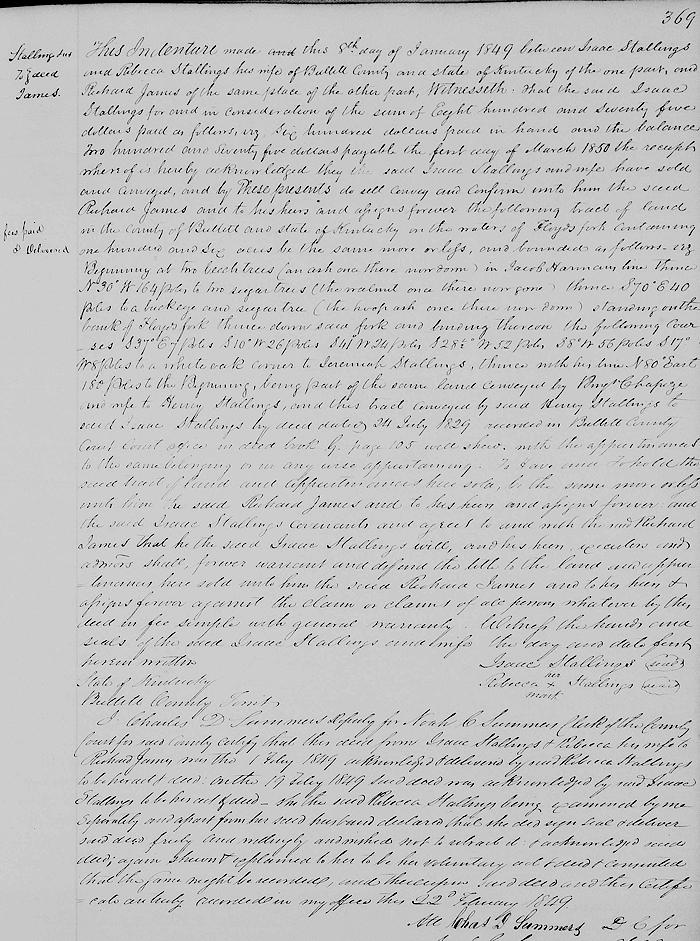 369
Stallings &c
To } deed
James.
This Indenture made and this 8th day of January 1849 between Isaac Stallings
and Rebecca Stallings his wife of Bullett County and state of Kentucky of the one part, and
Richard James of the same place of the other part, Witnesseth. That the said Isaac
Stallings for and in consideration of the sum of Eight hundred and Seventy five
dollars paid as follows, viz Six hundred dollars paid in hand and the balance
Two hundred and Seventy five dollars payable the first day of March 1850 the receipt
whereof is hereby acknowledged they the said Isaac Stallings and wife have sold
and conveyed, and by These presents do sell convey and confirm unto him the said
Richard James and to his heirs and assigns forever the following tract of land
fees paid
& Delivered
in the County of Bullett and state of Kentucky on the waters of Floyds fork containing
one hundred and Six acres be the same more or less, and bounded as follows viz
Beginning at two beech trees (an ash once there now down) in Jacob Harmans line thence
N 30° W 164 poles to two sugar trees (the walnut once there now gone) thence S 70° E 40
poles to a buckeye and sugar tree (the hoop ash once there now down) standing on the
bank of Floyds fork thence down said fork and binding thereon the following Cour
- ses S 37° E 7 poles S 10° W 26 poles S 41° W 24 poles S 28½° W 52 poles S 8° W 56 poles S 17°
W 8 poles to a white oak corner to Jeremiah Stallings, thence with his line N 80° East
180 poles to the Beginning, being part of the same land conveyed by Benjn Chapeze
and wife to Henry Stallings, and this tract conveyed by said Henry Stallings to
said Isaac Stallings by deed dated 24 July 1829 recorded in Bullett County
Court Court office in deed book G. page 105 will show. with the appurtenances
to the same belonging or in any wise appertaining. To Have and To hold the
said tract of land and appurtenances here sold, be the same more or less
unto him the said Richard James and to his heirs and assigns forever and
the said Isaac Stallings covenants and agrees to and with the said Richard
James that he the said Isaac Stallings will, and his heirs, executors and
admors shall, forever warrant and defend the title to the land and appur
- tenances here sold unto him the said Richard James and to his heirs &
assigns forever against the claim or claims of all persons whatever by this
deed in fee simple with general warranty. Witness the hands and
seals of the said Isaac Stallings and wife the day and date first
herein written
Isaac Stallings (seal)
Rebecca her x mark Stallings (seal)
State of Kentucky
Bullett County Sct
I Charles D Summers Deputy for Noah C Summers Clerk of the County
Court for said County certify that this deed from Isaac Stallings & Rebecca his wife to
Richard James was the 1 Feby 1849 acknowledged & delivered by said Rebecca Stallings
to be her act & deed. on the 19 Feby 1849 said deed was acknowledged by said Isaac
Stallings to be his act & deed - she the said Rebecca Stallings being examined by me
Separately and apart from her said husband declared that she did sign seal & deliver
said deed freely and willingly and wished not to retract it & acknowledged said
deed, again shewn & explained to her to be her voluntary act & deed & consented
that the same might be recorded, and thereupon said deed and this certifi
- cate are truly recorded in my office this 22d February 1849
Att Chas D Summers D C for